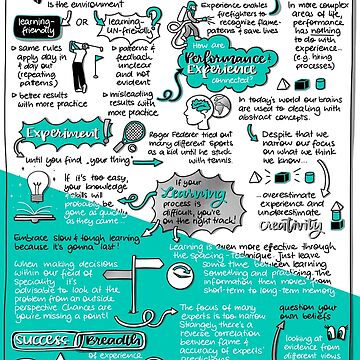 is the environment
learning-
friendly
OR
learning-
UN-friendly
→ same rules
apply day
in day
out
(repeating
patterns)
→ better results
with more practice
→ patterns &
feedback
unclear
and not
evident
→ misleading
results with
more practice
Experience enables
firefighters to
recognize flame-
patterns & save lives
How are
Performance &
Experience
connected?
In more complex
areas of life,
performance
has nothing
to do with
experience...
(e.g. hiring
processes)
In today's world our brains
are used to dealing with
abstract concepts.
Experiment
until you find "your thing"
Roger Federer tried out
many different Sports
as a kid until he stuck
with tennis.
Despite that we
narrow our focus
on what we
think we
know...
...overestimate
experience and
underestimate
Creativity
If it's too easy,
your knowledge
exits will
probably be
gone as quickly
as they came...
If your
Learning
process is
difficult, you're
on the right track!
Embrace slow & tough learning
because it's gonna last!
Learning is even more effective through
the Spacing-Technique: Just leave
some time between learning
something and practicing. The
information then moves from
short-term to long-term memory
When making decisions
within our field of
speciality it's
advisable to look at the
problem from an outside
perspective. Chances are
you're missing a point!
The focus of many
experts is too narrow.
Strangely, there's a
reverse correlation
between fame &
accuracy of experts'
predictions
question your
own beliefs
looking at
evidence from
different views
SUCCESS
Breadth
of experience